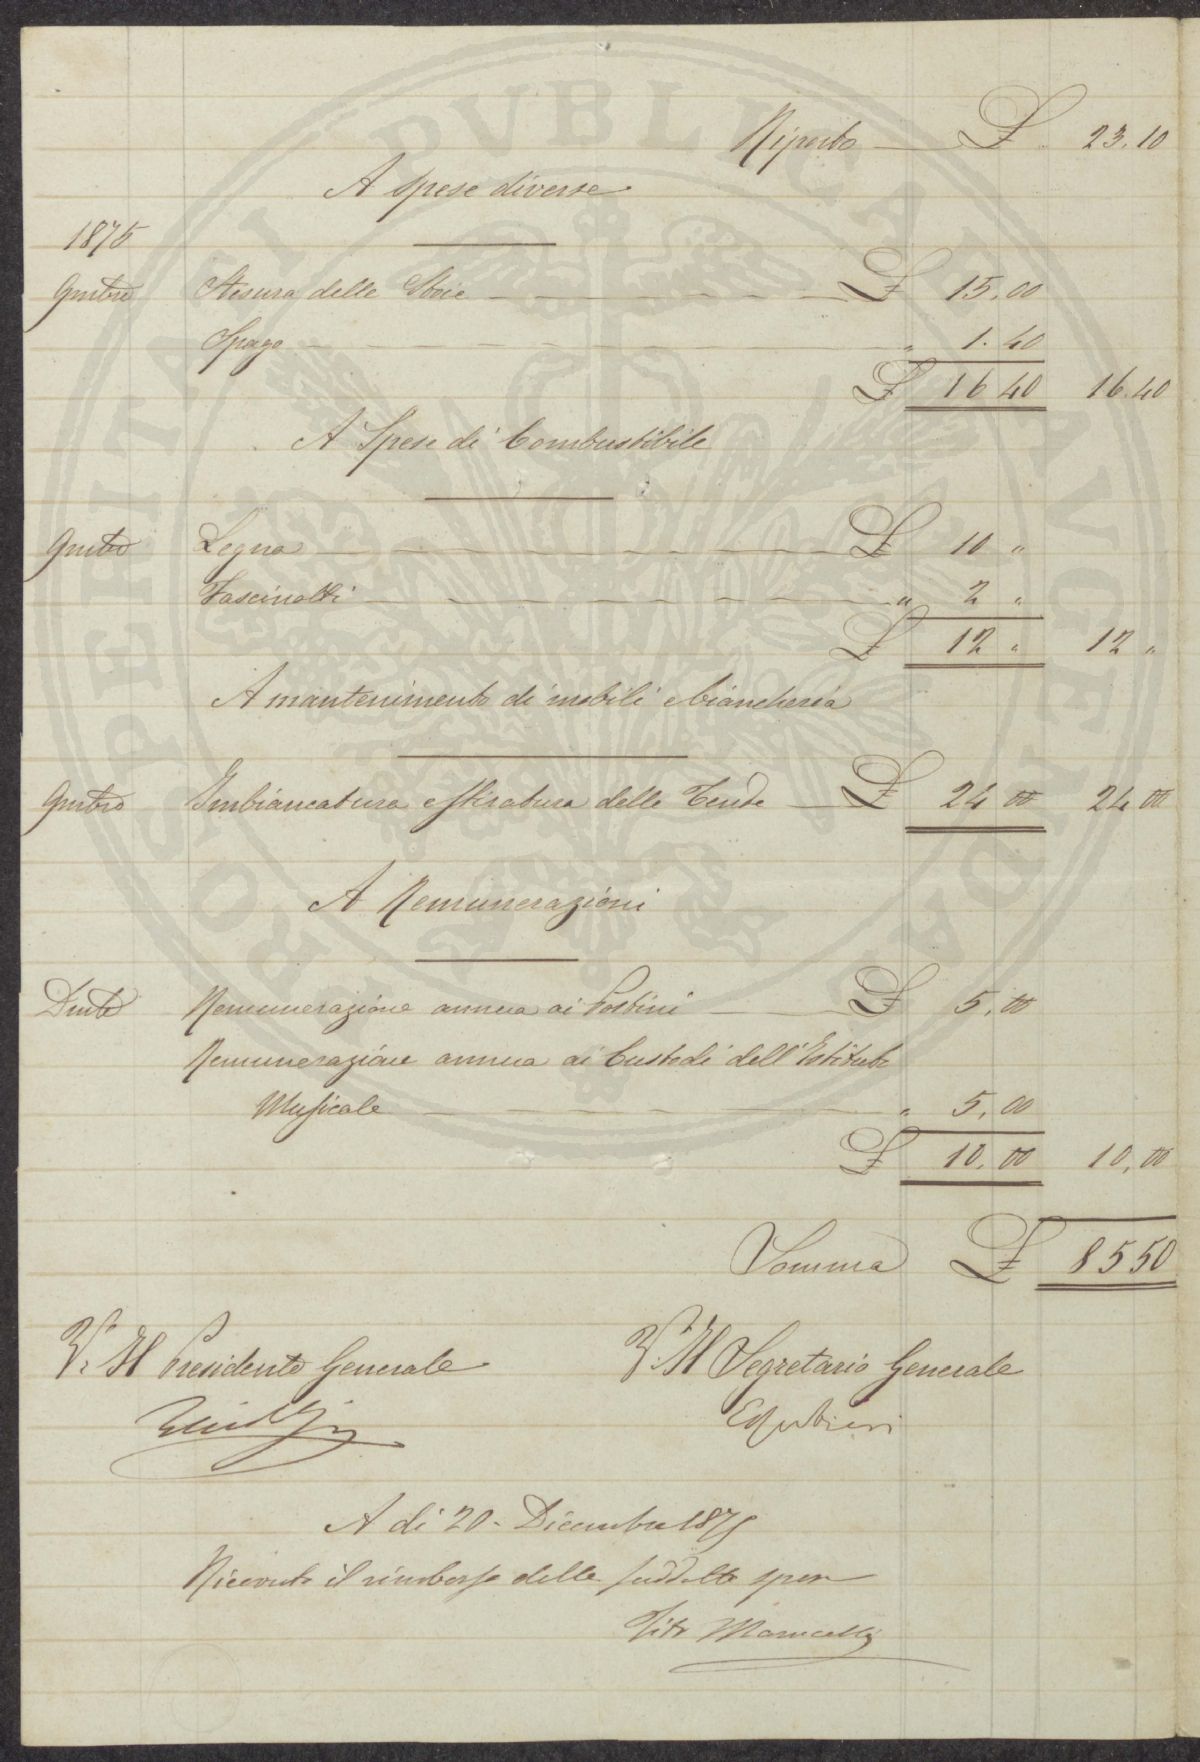 Riporto £ 23.10
A spese diverse
1875
Stesura delle Stoie £ 15.00
Spago " 1.40
£ 16 40 16.40
A Spese di Combustibile
Legna £ 10 "
Fascinotti " 2 "
£ 12 " 12 "
A mantenimento di mobili e biancheria
Imbiancatura e stiratura delle Tende £ 24 00 24 00
A Remunerazioni
Remunerazione annua ai Postini £ 5.00
Remunerazione annua ai Custodi dell'Istituto
Musicale " 5.00
£ 10.00 10,00
Somma £ 85 50
V. Il Presidente Generale
V. Il Segretario Generale
A di 20 Dicembre 1875
Ricevuto il rimborso delle suddette spese
PROSPERITATI PVBLICAE AVGENDAE